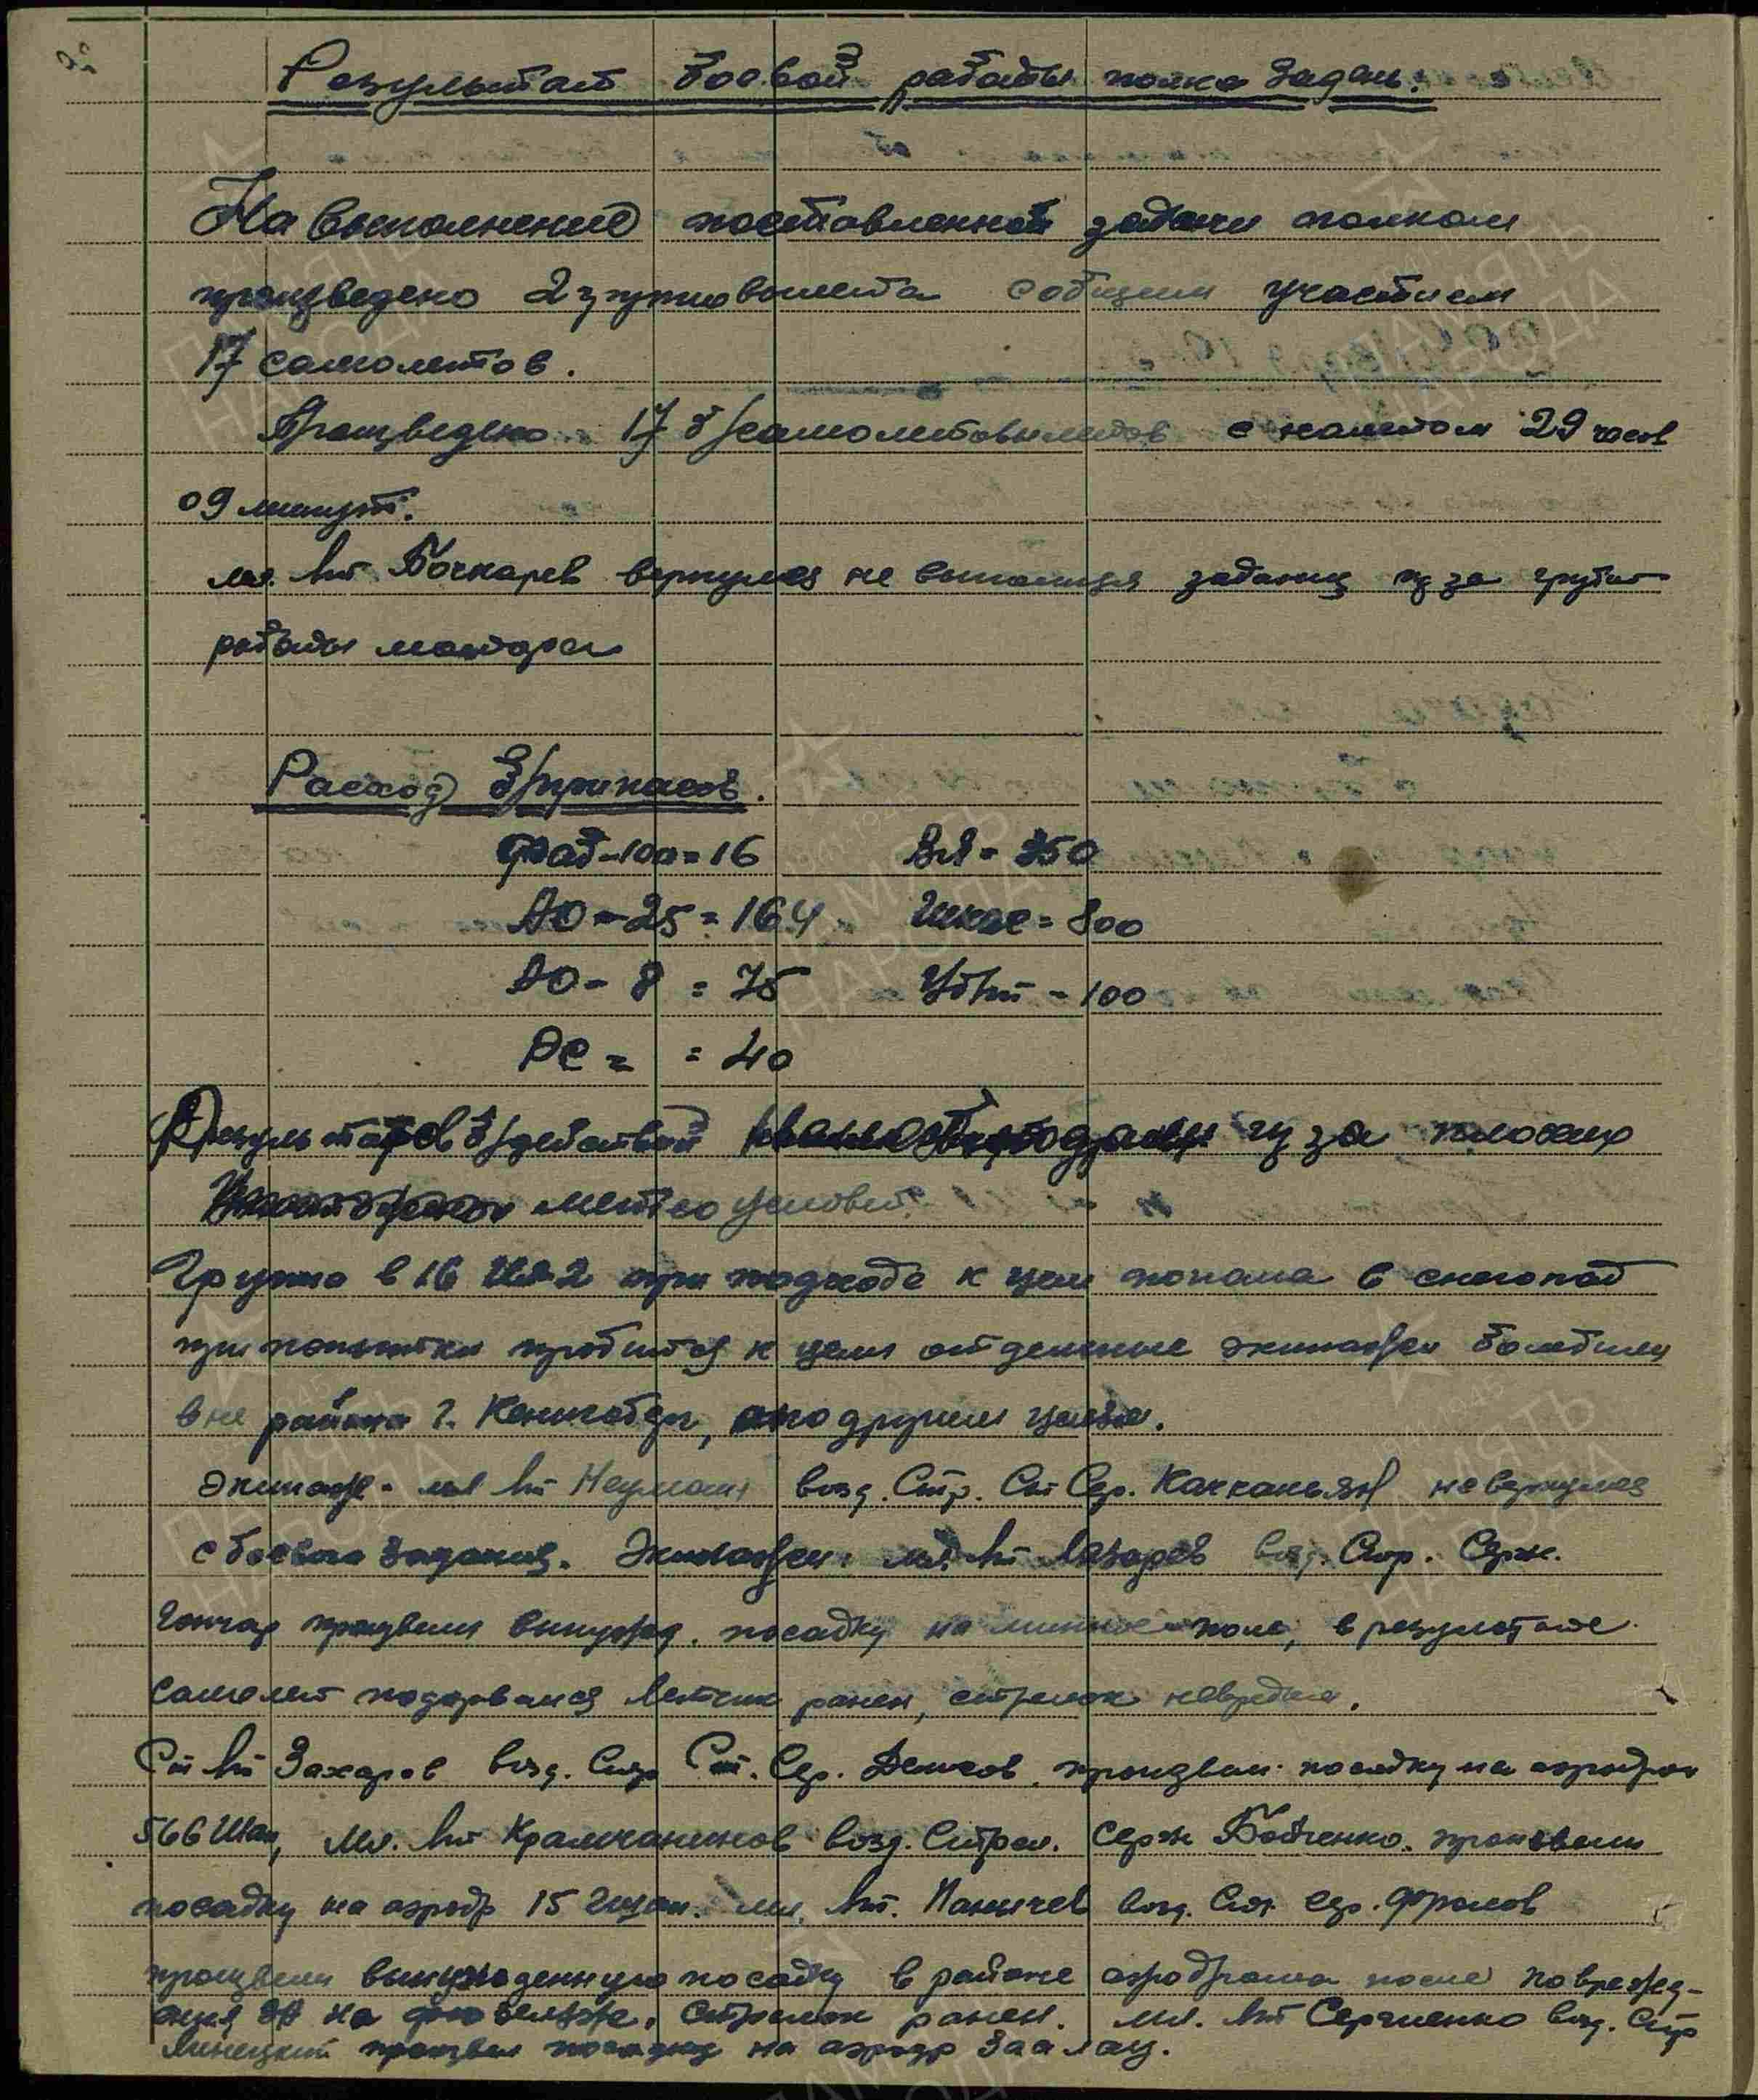 Результат боевой работы полка за день.
На выполнение поставленной задачи полком
произведено 2 групповылета с общим участием
17 самолетов.
Произведено 17 б/самолетовылетов с налетом 29 часов
09 минут.
мл. л-т Бочкарев вернулся не выполнив задания из за грубой
работы мотора
Расход б/припасов.
Фаб-100=16 ВЯ = 350
АО-25=164 Шкас = 800
АО-8 = 75 Убт - 100
РС = = 40
Результатов б/действий из за плохих
метеоусловий.
Группа в 16 Ил-2 при подходе к цели попала в снегопад
при попытки пробится к цели отдельные экипажи бомбили
вне района г. Кенигсберг, по другим целям.
Экипаж мл л-т Неуман возд. Стр. Ст Сер. Качканьян не вернулся
с боевого задания. Экипаж мл. л-т Лазарев возд. Стр. Серж.
Гончар произвели вынужд. посадку на минное поле, в результате
самолет подорвался летчик ранен, стрелок невредим.
Ст л-т Захаров возд. Стр Ст. Сер. Денисов произвели посадку на аэродром
566 Шап, мл. л-т Крамчанинов возд. Стрел. Серж Бойченко произвели
посадку на аэродр 15 Гшап. мл. л-т. Паничев возд. Стр. сер. Фролов
произвели вынужденную посадку в районе аэродрома после поврежд-
ения на фюзеляже, стрелок ранен. мл. л-т Сергиенко возд. Стр
Линецкий произвел посадку на аэродр Заалау.